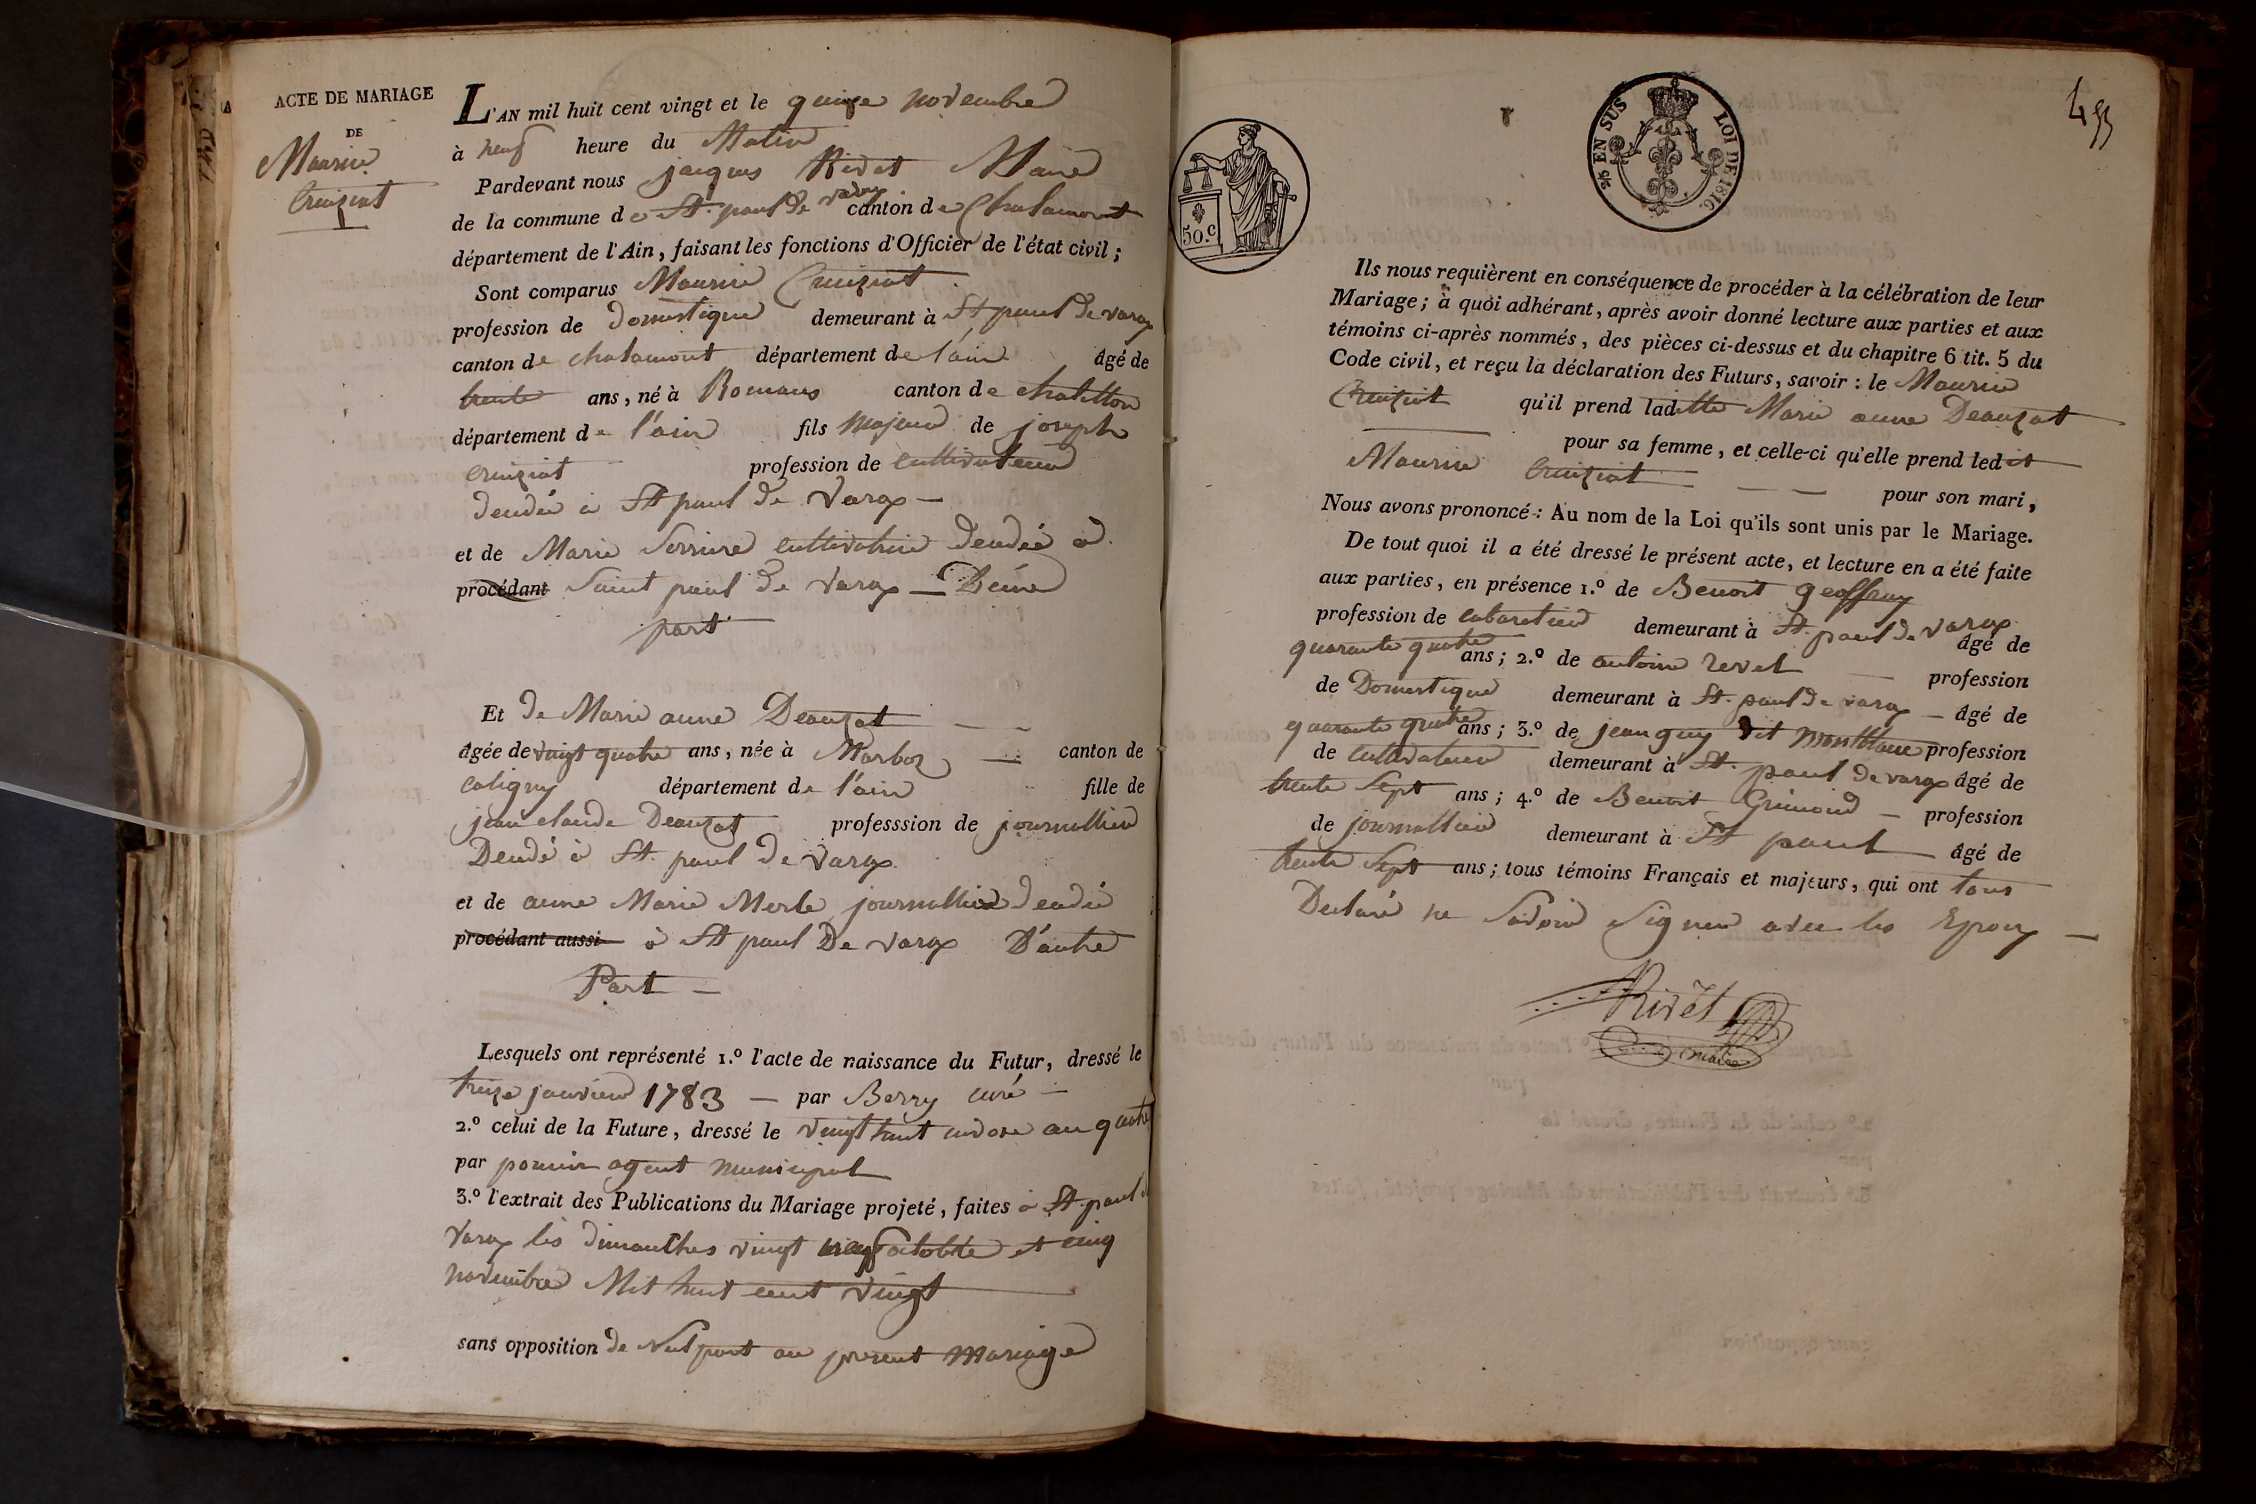 ACTE DE MARIAGE
DE
Maurice
Cruiziat
L'AN mil huit cent vingt et le quinze novembre
à neuf heure du Matin
Pardevant nous jacques Rivet Maire
de la commune de St. paul de varax canton de Chalamont
département de l'Ain, faisant les fonctions d'Officier de l'état civil;
Sont comparus Maurice Cruiziat
profession de domestique demeurant à St paul de varax
canton de chalamont département de l'ain âgé de
trente ans, né à Romans canton de chatillon
département de l'ain fils majeur de joseph
cruiziat profession de cultivateur
deudé à St paul de varax
et de Marie cultivatrice deudée à
procédant Saint paul de varax D'une
part
Et de Marie anne Deauzat
âgée de vingt quatre ans, née à Marboz canton de
coligny département de l'ain fille de
jean claude Deauzat professsion de journallier
Deudé à St. paul de varax
et de anne Marie Merle journallier deudée
procédant aussi à St paul De varax D'autre
Part
Lesquels ont représenté 1.º l'acte de naissance du Futur, dressé le
treize janvier 1783 par Berry curé
2.º celui de la Future, dressé le vingt huit nivose an quatre
par agent municipal
3.º l'extrait des Publications du Mariage projeté, faites à St. paul de
varax les dimanches vingt neuf octobre et cinq
novembre Mil huit cent vingt
sans opposition de Nul part au present Mariage
495
2/5 EN SUS
LOI DE 1816.
50.c
Ils nous requièrent en conséquence de procéder à la célébration de leur
Mariage; à quoi adhérant, après avoir donné lecture aux parties et aux
témoins ci-après nommés, des pièces ci-dessus et du chapitre 6 tit. 5 du
Code civil, et reçu la déclaration des Futurs, savoir: le Maurice
Cruiziat qu'il prend laditte Marie anne Deauzat
pour sa femme, et celle-ci qu'elle prend ledit
Maurice Cruiziat pour son mari,
Nous avons prononcé: Au nom de la Loi qu'ils sont unis par le Mariage.
De tout quoi il a été dressé le présent acte, et lecture en a été faite
aux parties, en présence 1.º de Benoit geoffray
profession de cabaretier demeurant à St. paul de varax âgé de
quarante quatre ans; 2.º de antoine revel profession
de Domestique demeurant à St. paul de varax âgé de
quarante quatre ans; 3.º de jean guy dit montblanc profession
de cultivateur demeurant à St. paul de varax âgé de
trente Sept ans; 4.º de Benoit profession
de journallier demeurant à St paul âgé de
trente Sept ans; tous témoins Français et majeurs, qui ont tous
Declaré ne Savoir Signer avec les Epoux
Rivet
maire